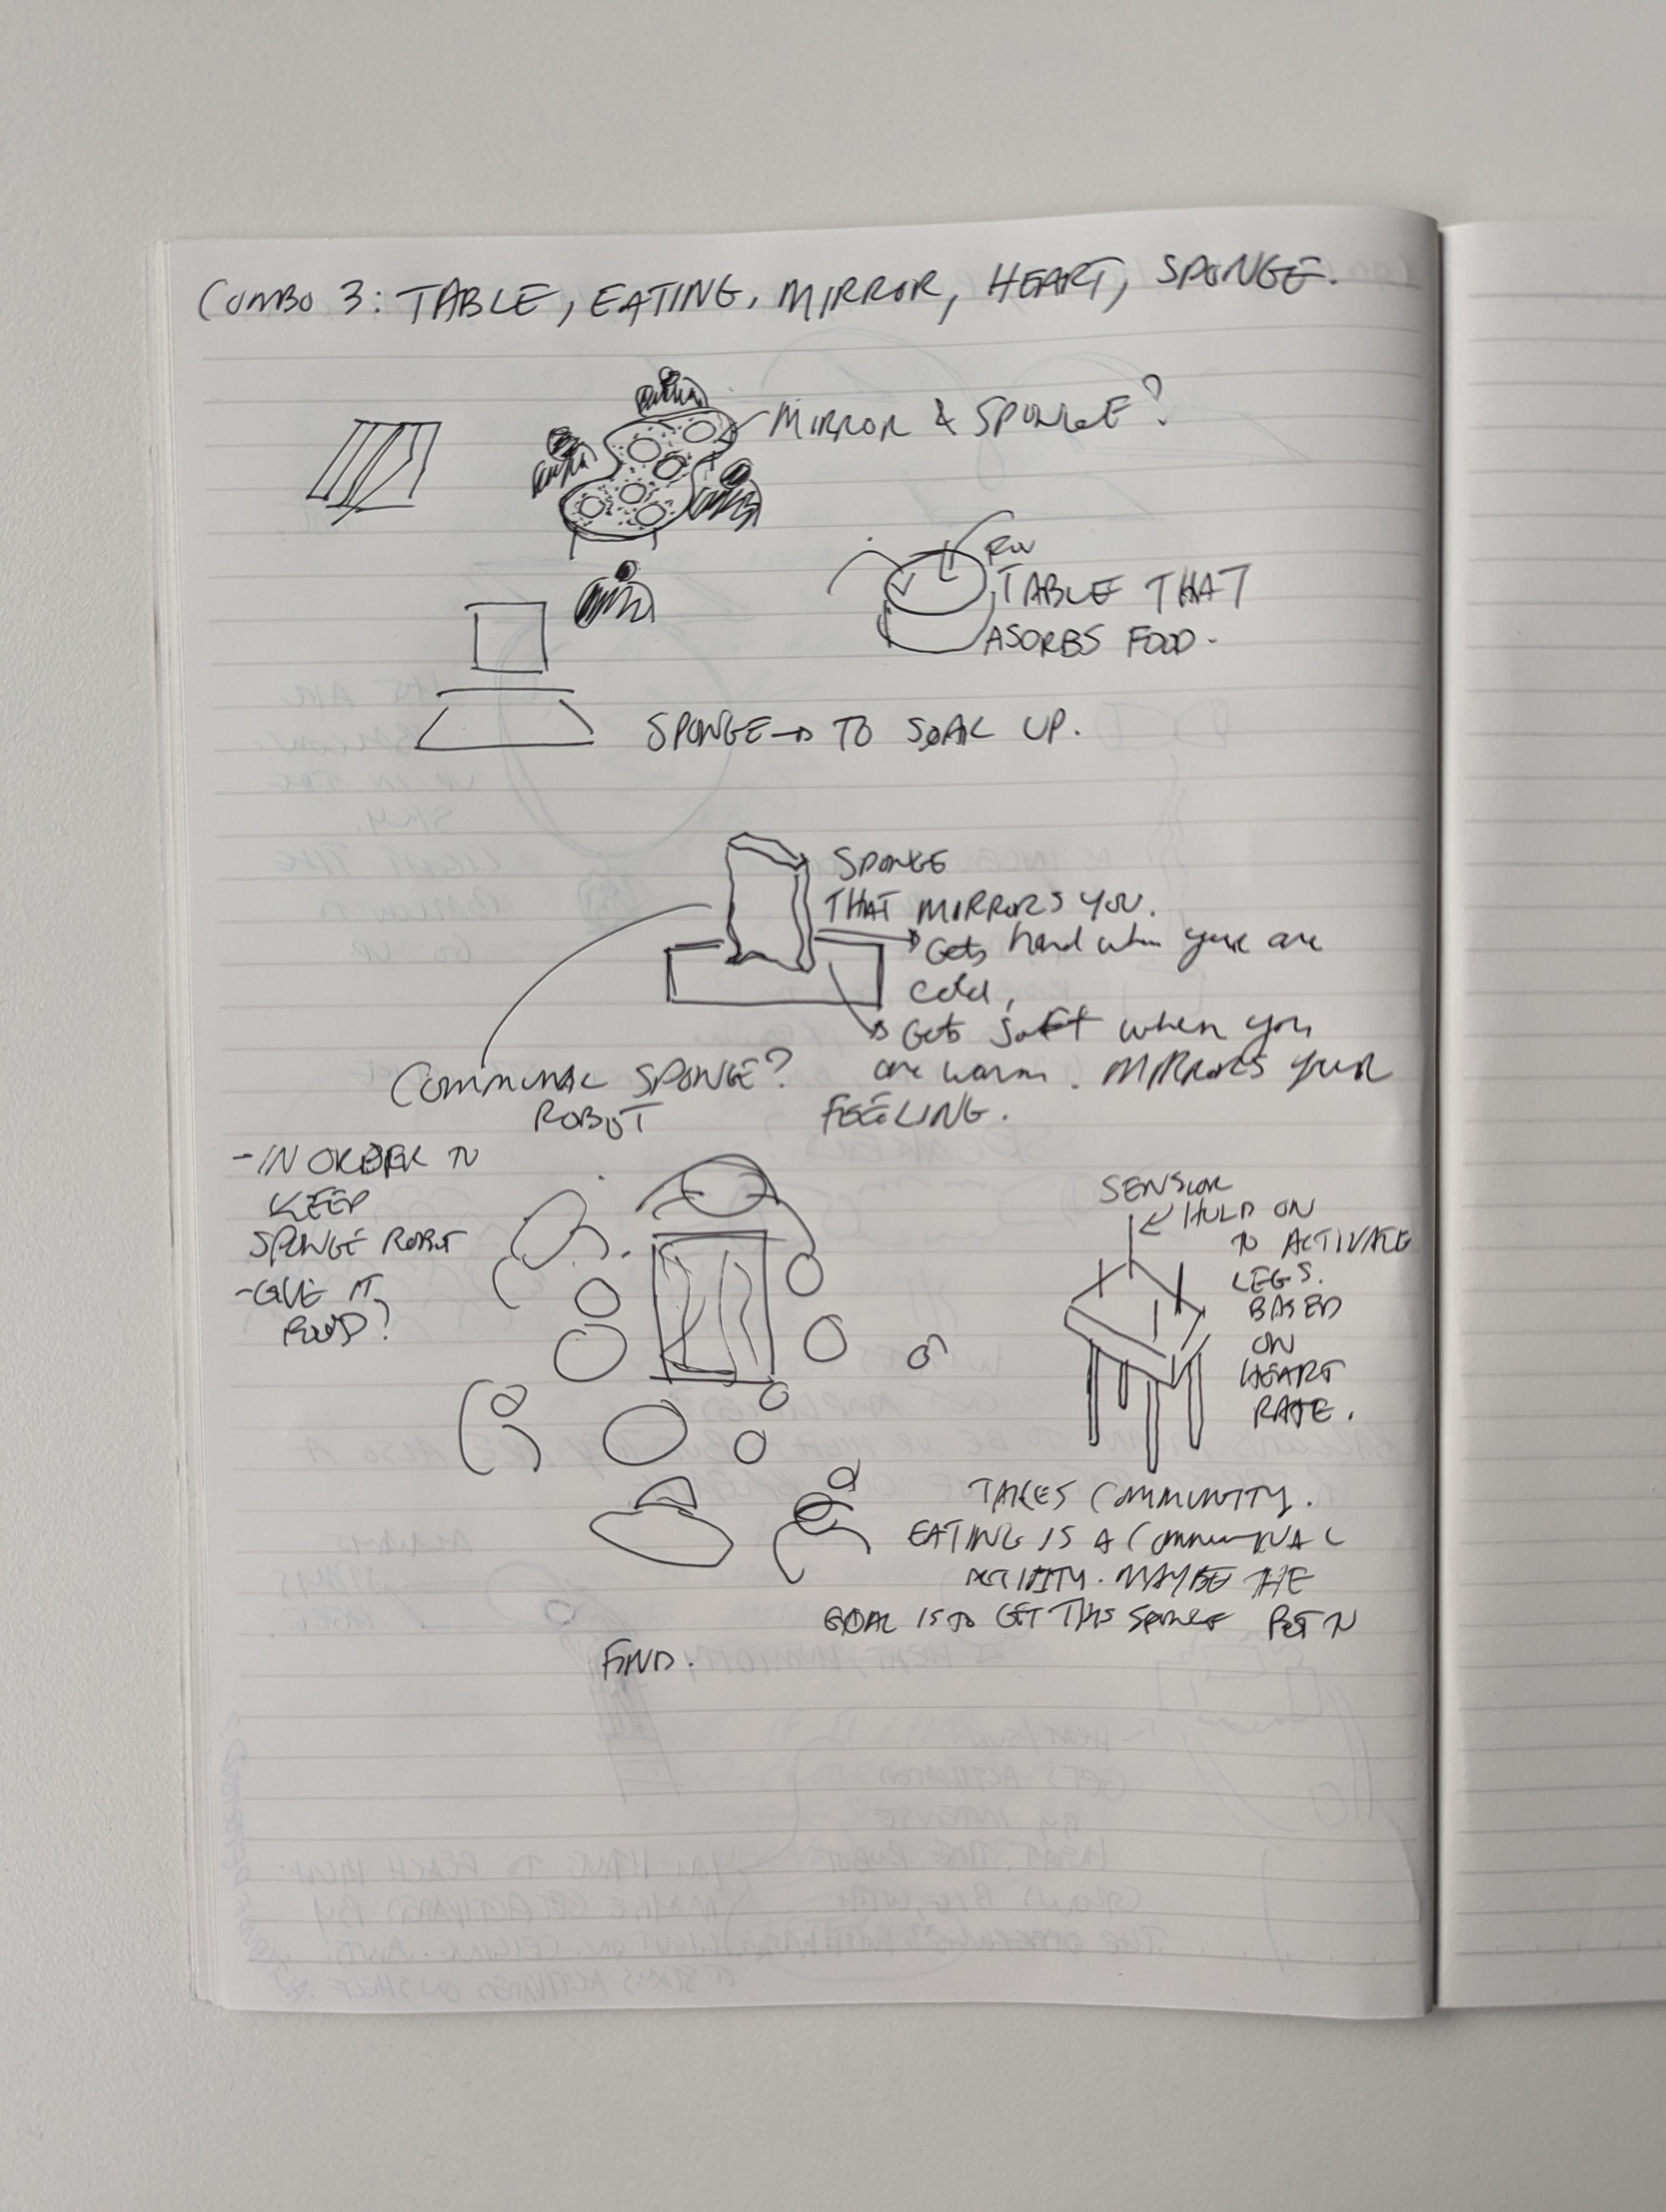 COMBO 3: TABLE, EATING, MIRROR, HEART, SPONGE.
MIRROR & SPONGE?
TABLE THAT
ASORBS FOOD.
SPONGE → TO SOAK UP.
SPONGE
THAT MIRRORS YOU.
→ Gets hard when you are
cold,
→ Gets soft when you
are warm. MIRRORS YOUR
FEELING.
COMMUNAL SPONGE?
ROBOT
- IN ORDER TO
KEEP
SPONGE ROBOT
- GIVE IT
FOOD?
SENSOR
HOLD ON
TO ACTIVATE
LEGS.
BASED
ON
HEART
RATE.
TAKES COMMUNITY.
EATING IS A COMMUNAL
ACTIVITY. MAYBE THE
GOAL IS TO GET THIS SPONGE
FIND.